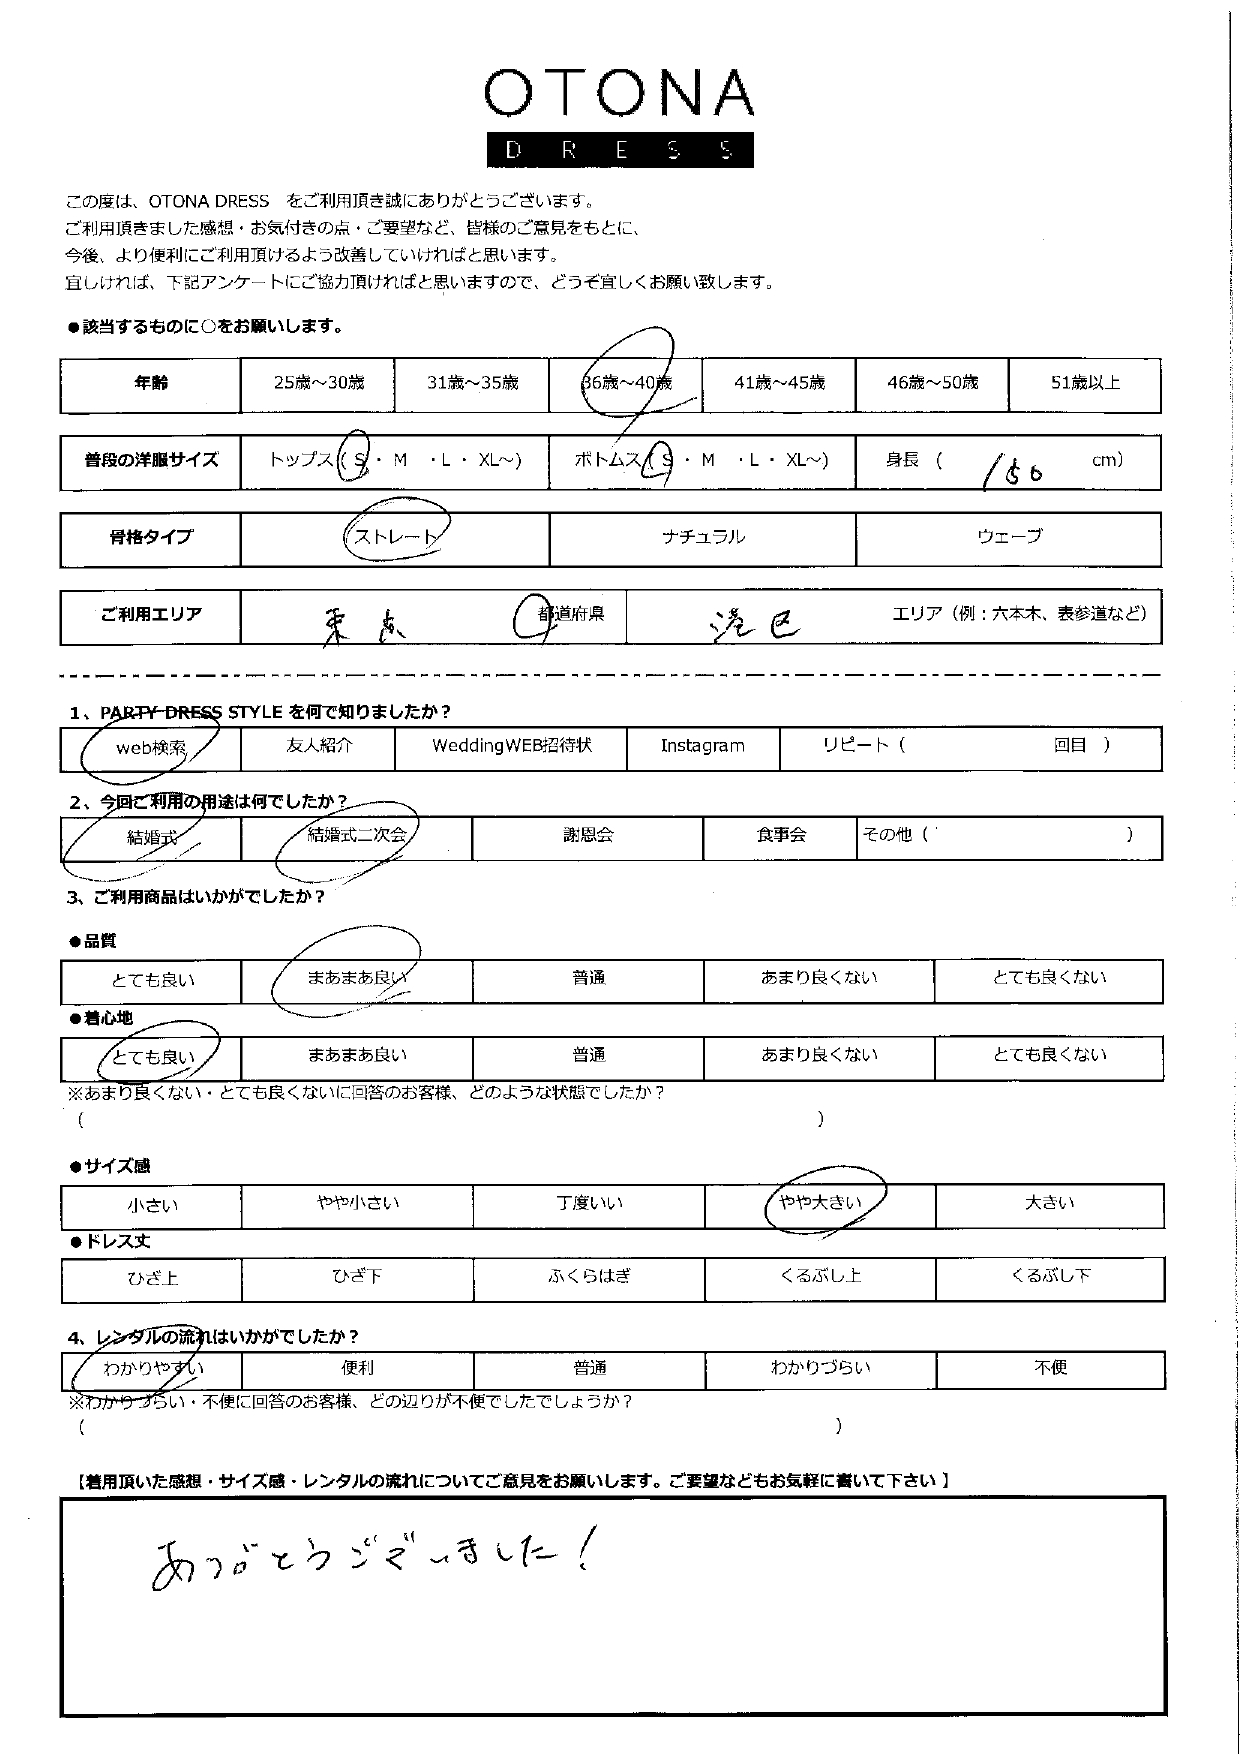 OTONA
DRESS
この度は、OTONA DRESS をご利用頂き誠にありがとうございます。
ご利用頂きました感想・お気付きの点・ご要望など、皆様のご意見をもとに、
今後、より便利にご利用頂けるよう改善していければと思います。
宜しければ、下記アンケートにご協力頂ければと思いますので、どうぞ宜しくお願い致します。
●該当するものに○をお願いします。
年齢 25歳～30歳 31歳～35歳 36歳～40歳 41歳～45歳 46歳～50歳 51歳以上
普段の洋服サイズ トップス ( S ・ M ・ L ・ XL～) ボトムス ( S ・ M ・ L ・ XL～) 身長 ( cm)
骨格タイプ ストレート ナチュラル ウェーブ
ご利用エリア 東京 都道府県 港区 エリア（例：六本木、表参道など）
1、PARTY DRESS STYLE を何で知りましたか？
web検索 友人紹介 WeddingWEB招待状 Instagram リピート ( 回目 )
2、今回ご利用の用途は何でしたか？
結婚式 結婚式二次会 謝恩会 食事会 その他 ( )
3、ご利用商品はいかがでしたか？
●品質
とても良い まあまあ良い 普通 あまり良くない とても良くない
●着心地
とても良い まあまあ良い 普通 あまり良くない とても良くない
※あまり良くない・とても良くないに回答のお客様、どのような状態でしたか？
( )
●サイズ感
小さい やや小さい 丁度いい やや大きい 大きい
●ドレス丈
ひざ上 ひざ下 ふくらはぎ くるぶし上 くるぶし下
4、レンタルの流れはいかがでしたか？
わかりやすい 便利 普通 わかりづらい 不便
※わかりづらい・不便に回答のお客様、どの辺りが不便でしたでしょうか？
( )
【着用頂いた感想・サイズ感・レンタルの流れについてご意見をお願いします。ご要望などもお気軽に書いて下さい 】
ありがとうございました！